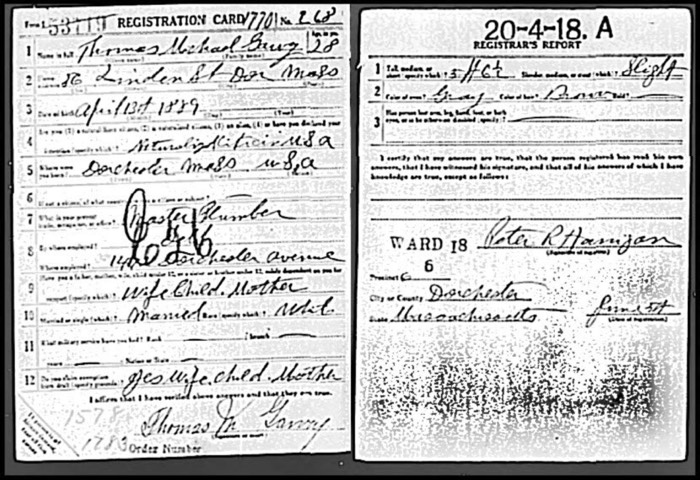 Form 1 53119 REGISTRATION CARD 1701 No. 268
1 Name in full Thomas Michael 28
2 Home 86 Linden St Dor Mass
3 Date of birth April 13th 1889
4 Are you (1) a natural born citizen, (2) a naturalized citizen, (3) an alien, (4) or have you declared your
intention (specify which)? Natural citizen U S A
5 Where were you born? Dorchester Mass U.S.A
6 If not a citizen, of what country are you a citizen or subject?
7 What is your present trade, occupation, or office? Master Plumber
8 By whom employed?
Where employed? Dorchester avenue
9 Have you a father, mother, wife, child under 12, or a sister or brother under 12, solely dependent on you for
support (specify which)? Wife Child. Mother
10 Married or single (which)? Married Race (specify which)?
11 What military service have you had? Rank branch
years Nation or State
12 Do you claim exemption from draft (specify grounds)? Yes Wife child. Mother
I affirm that I have verified above answers and that they are true.
Thomas M
1783 Order Number
20-4-18. A
REGISTRAR'S REPORT
1 Tall, medium, or short (specify which)? Slender, medium, or stout (which)? Slight
2 Color of eyes? Gray Color of hair? Brown Bald?
3 Has person lost arm, leg, hand, foot, or both
I certify that my answers are true, that the person registered has read his own
answers, that I have witnessed his signature, and that all of his answers of which I have
knowledge are true, except as follows:
WARD 18 Peter R Hanigan
6
Precinct 6
City or County Dorchester
State Massachusetts June 5th